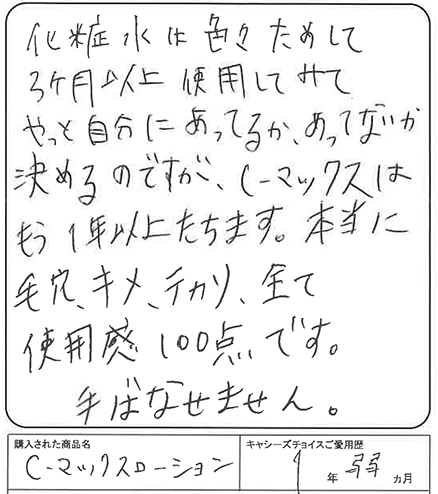 化粧水は色々ためして
3ケ月以上使用してみて
やっと自分にあってるか、あってないか
決めるのですが、C-マックスは
もう1年以上たちます。本当に
毛穴、キメ、テカリ、全て
使用感100点です。
手ばなせません。
購入された商品名
C-マックスローション
キャシーズチョイスご愛用歴
1年弱ヵ月